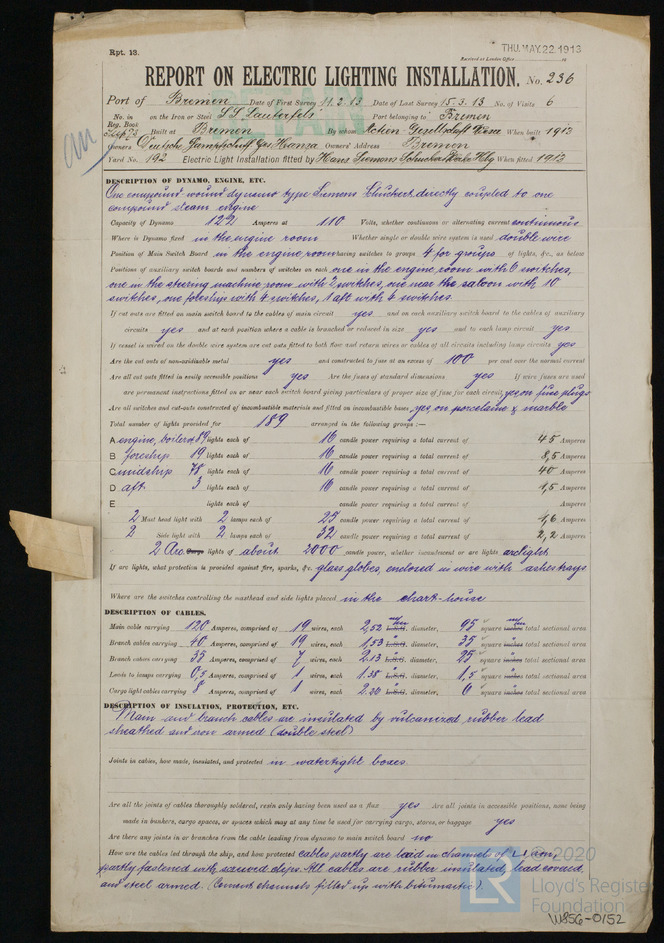 Rpt. 13.
THU. MAY. 22 1913
Received at London Office
RETAIN
REPORT ON ELECTRIC LIGHTING INSTALLATION. No. 236
Port of Bremen Date of First Survey 11.2.13 Date of Last Survey 15.3.13 No. of Visits 6
No. in on the Iron or Steel SS Lauterfels Port belonging to Bremen
Reg. Book Built at Bremen By whom Actien Gesellschaft Weser When built 1913
Owners Deutsche Dampfschiff Ges Hansa Owners' Address Bremen
Yard No. 192 Electric Light Installation fitted by Hans Siemens Schuckert Werke Hbg When fitted 1913
DESCRIPTION OF DYNAMO, ENGINE, ETC.
One compound wound dynamo type Siemens Schuckert, directly coupled to one
compound steam engine
Capacity of Dynamo 122 Amperes at 110 Volts, whether continuous or alternating current continuous
Where is Dynamo fixed in the engine room Whether single or double wire system is used double wire
Position of Main Switch Board in the engine room having switches to groups 4 for groups of lights, &c., as below
Positions of auxiliary switch boards and numbers of switches on each one in the engine room with 6 switches,
one in the steering machine room with 2 switches, one near the saloon with 10
switches, one foreship with 4 switches, 1 aft with 4 switches.
If cut outs are fitted on main switch board to the cables of main circuit yes and on each auxiliary switch board to the cables of auxiliary
circuits yes and at each position where a cable is branched or reduced in size yes and to each lamp circuit yes
If vessel is wired on the double wire system are cut outs fitted to both flow and return wires or cables of all circuits including lamp circuits yes
Are the cut outs of non-oxidizable metal yes and constructed to fuse at an excess of 100 per cent over the normal current
Are all cut outs fitted in easily accessible positions yes Are the fuses of standard dimensions yes If wire fuses are used
are permanent instructions fitted on or near each switch board giving particulars of proper size of fuse for each circuit yes, on fuse plugs
Are all switches and cut-outs constructed of incombustible materials and fitted on incombustible bases yes, on porcelaine & marble
Total number of lights provided for 189 arranged in the following groups :—
A engine, boiler 89 lights each of 16 candle power requiring a total current of 45 Amperes
B foreship 19 lights each of 16 candle power requiring a total current of 8,5 Amperes
C midship 78 lights each of 16 candle power requiring a total current of 40 Amperes
D aft 3 lights each of 16 candle power requiring a total current of 1,5 Amperes
E lights each of candle power requiring a total current of Amperes
2 Mast head light with 2 lamps each of 25 candle power requiring a total current of 1,6 Amperes
2 Side light with 2 lamps each of 32 candle power requiring a total current of 2,2 Amperes
2 Arc Cargo lights of about 2000 candle power, whether incandescent or arc lights arclights
If arc lights, what protection is provided against fire, sparks, &c. glass globes, enclosed in wire with ashestrays
Where are the switches controlling the masthead and side lights placed in the chart-house
DESCRIPTION OF CABLES.
Main cable carrying 120 Amperes, comprised of 19 wires, each 2,52 m/m diameter, 95 square m/m total sectional area
Branch cables carrying 40 Amperes, comprised of 19 wires, each 1,53 diameter, 35 square inches total sectional area
Branch cables carrying 35 Amperes, comprised of 7 wires, each 2.13 diameter, 25 square inches total sectional area
Leads to lamps carrying 0,5 Amperes, comprised of 1 wires, each 1.38 diameter, 1,5 square inches total sectional area
Cargo light cables carrying 8 Amperes, comprised of 1 wires, each 2.20 diameter, 6 square inches total sectional area
DESCRIPTION OF INSULATION, PROTECTION, ETC.
Main and branch cables are insulated by vulcanized rubber lead
sheathed and iron armed (double steel)
Joints in cables, how made, insulated, and protected in watertight boxes
Are all the joints of cables thoroughly soldered, resin only having been used as a flux yes Are all joints in accessible positions, none being
made in bunkers, cargo spaces, or spaces which may at any time be used for carrying cargo, stores, or baggage yes
Are there any joints in or branches from the cable leading from dynamo to main switch board no
How are the cables led through the ship, and how protected cables partly are laid in channel of iron,
partly fastened with screwed clips. All cables are rubber insulated, lead covered,
and steel armed. (Cement channels filled up with bitumastic).
© 2020
LR Lloyd's Register
Foundation
W856-0152